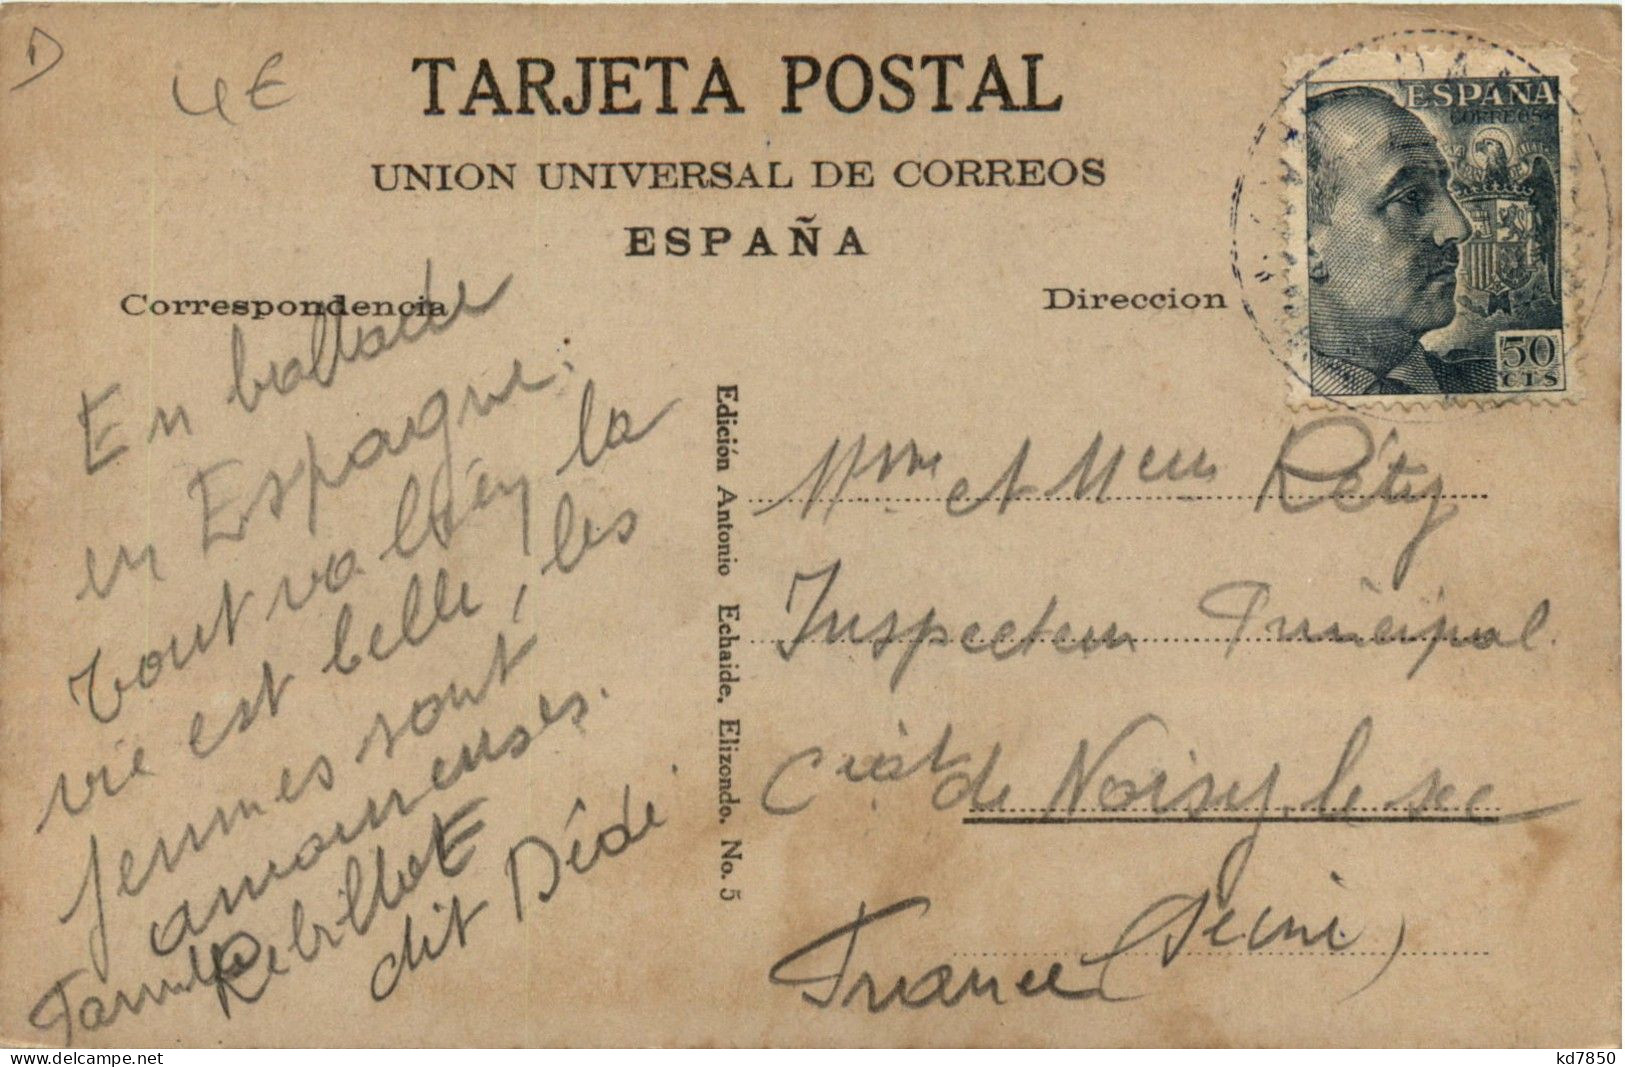 D
4 E
TARJETA POSTAL
UNION UNIVERSAL DE CORREOS
ESPAÑA
ESPAÑA
CORREOS
50
CTS
Correspondencia
Direccion
En ballade
en Espagne.
tout va bien la
vie est belle, les
femmes sont
amoureuses.
Famille Rebillot
dit Dédé
Edición Antonio Echaide. Elizondo. No. 5
Mme et Meur Réty
Inspecteur Principal
de Noisy le sec
France (Seine)
www.delcampe.net
kd7850